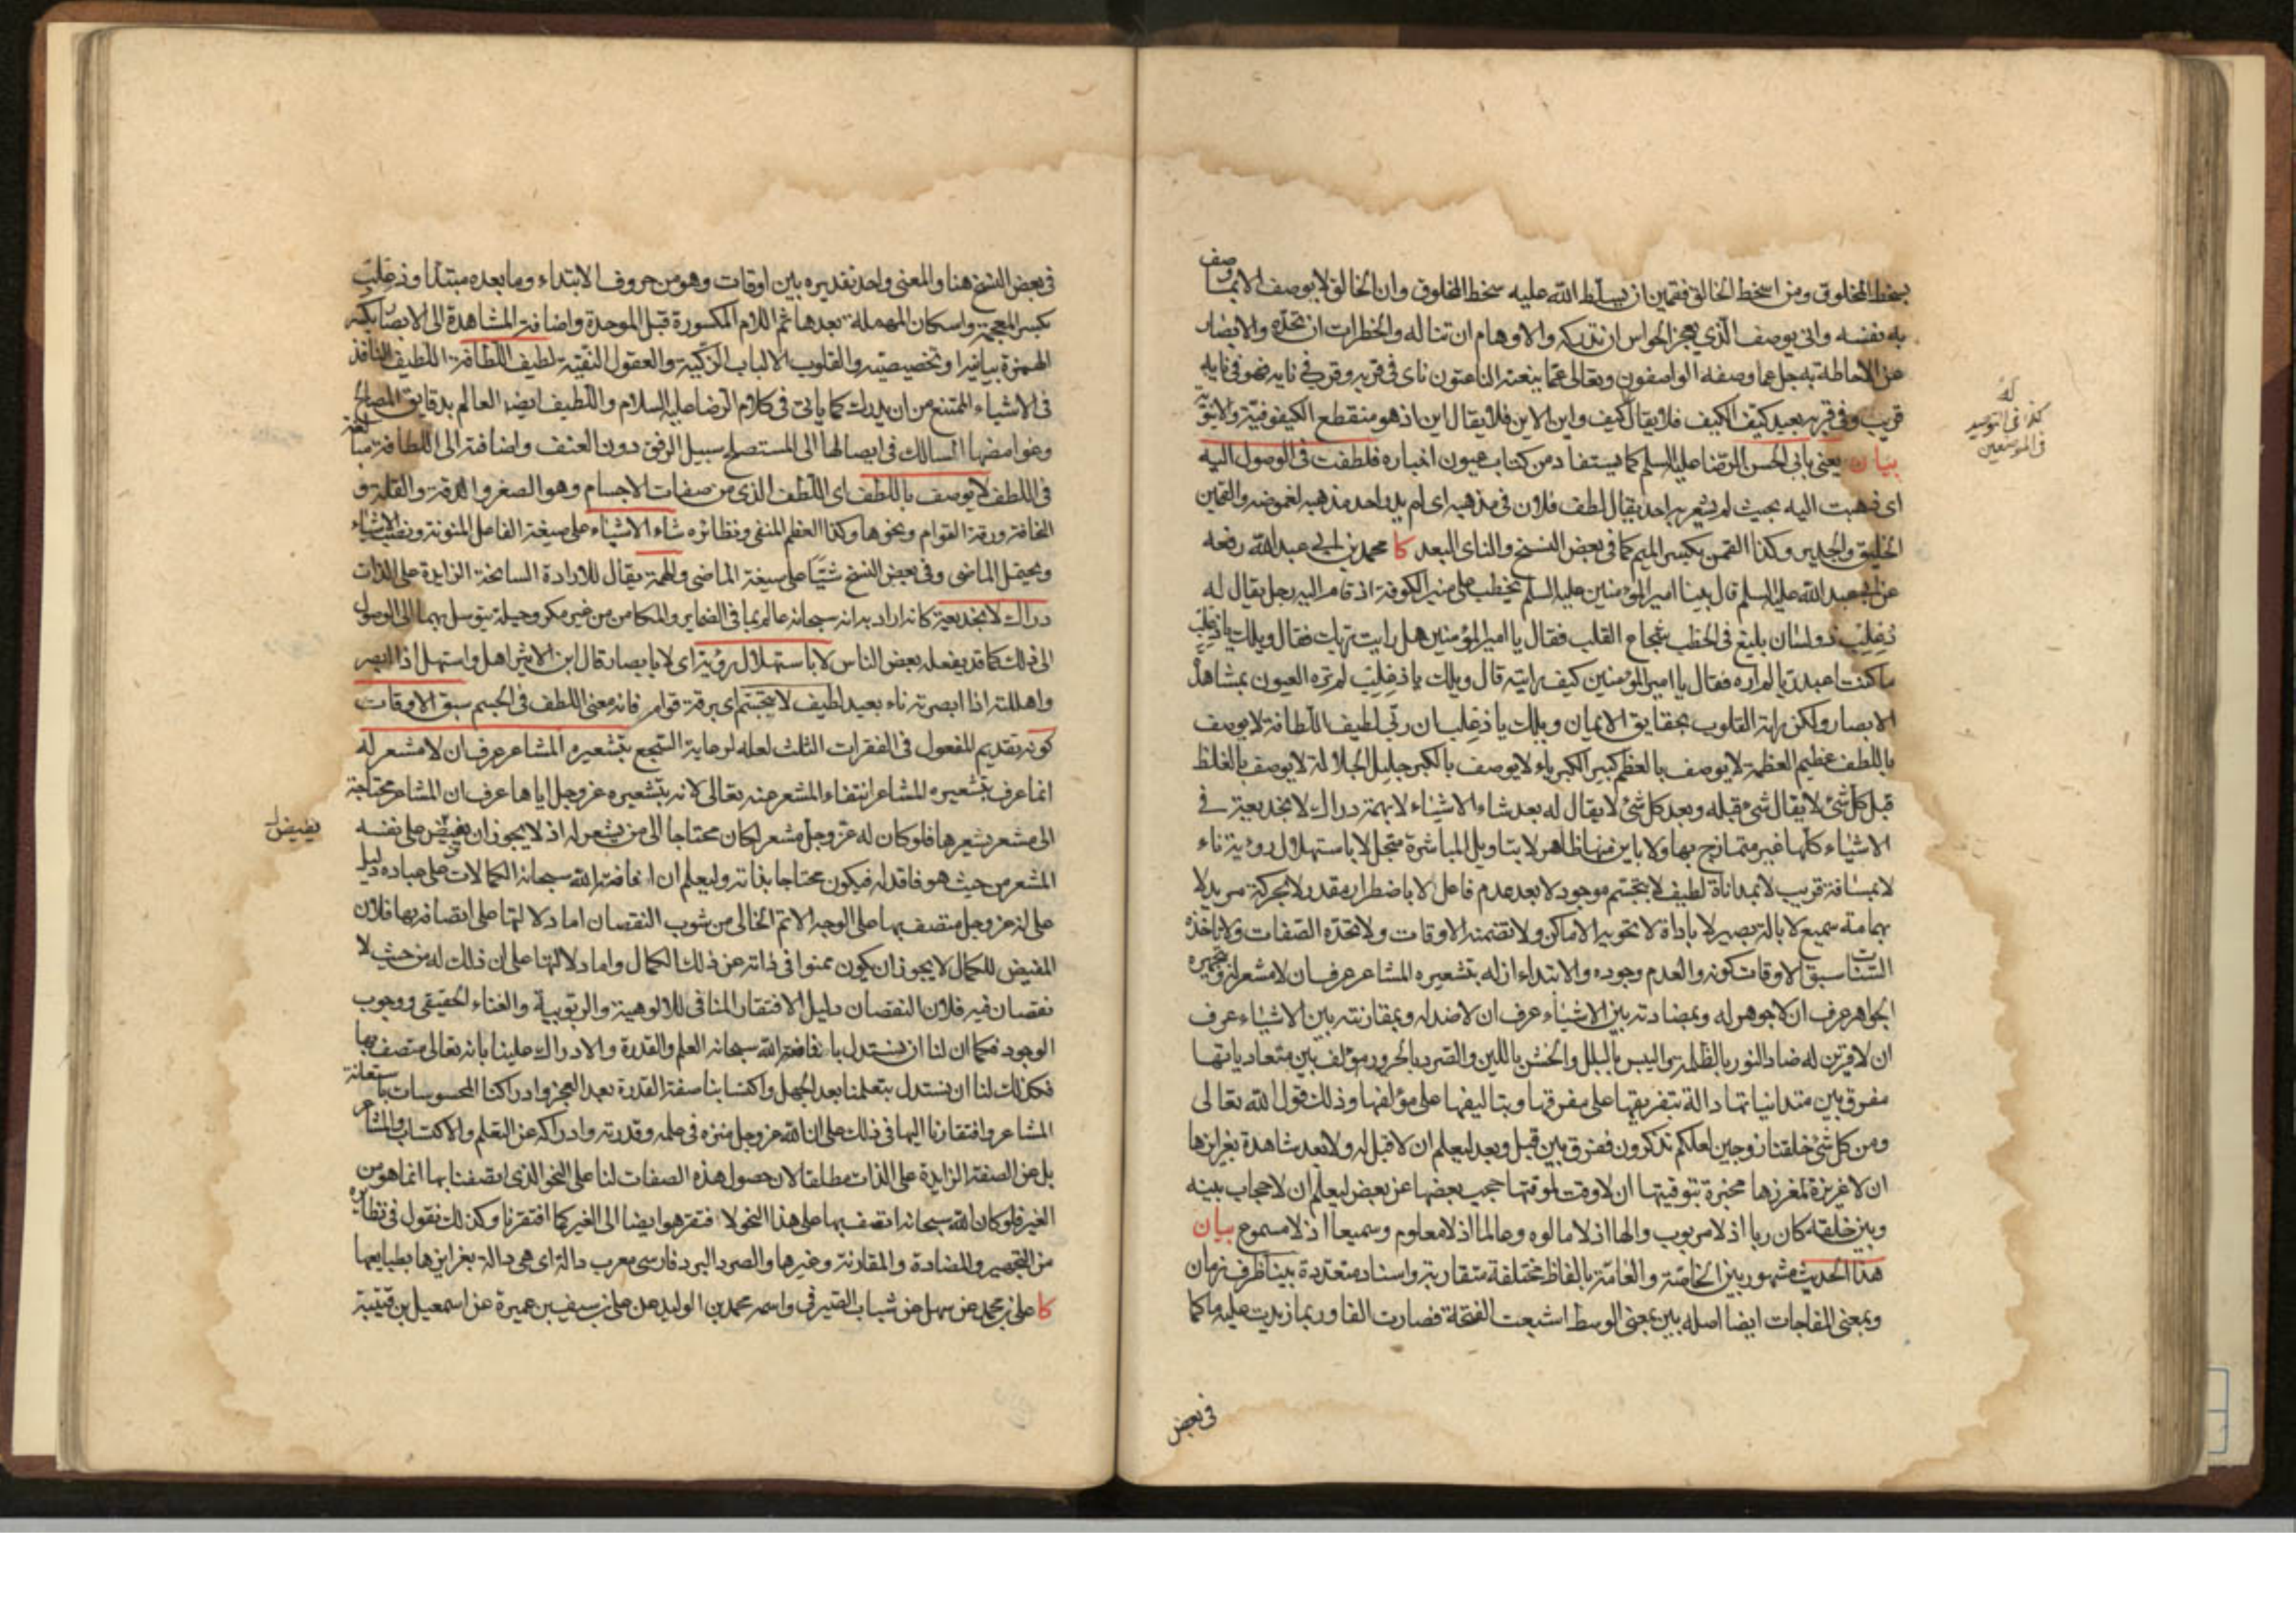 بسخط المخلوق ومن اسخط الخالق فقمين ان يسلط الله عليه سخط المخلوق وان الخالق لا يوصف الا بما وصف
به نفسه وانى يوصف الذي يعجز الحواس ان تدركه والاوهام ان تناله والخطرات ان تحده والابصار
عن الاحاطة به جل عما وصفه الواصفون وتعالى عما ينعته الناعتون ناى فى قربه وقرب فى نايه فهو فى نايه
قريب وفى قربه بعيد كيف الكيف فلا يقال كيف واين الاين فلا يقال اين اذ هو منقطع الكيفوفية والاينونية
له
كذا فى التوحيد
فى الموضعين
بيان يعنى بابى الحسن الرضا عليه السلم كما يستفاد من كتاب عيون اخباره فلطفت فى الوصول اليه
اى ذهبت اليه بحيث لم يشعر به احد يقال لطف فلان فى مذهبه اى لم يدر احد مذهبه لغموضه والقمين
الخليق والجدير وكذا القمن بكسر الميم كما فى بعض النسخ والناى البعد كا محمد بن ابي عبد الله رفعه
عن ابى عبد الله عليه السلم قال بينا امير المؤمنين عليه السلم يخطب على منبر الكوفة اذ قام اليه رجل يقال له
ذعلب ذو لسان بليغ فى الخطب شجاع القلب فقال يا امير المؤمنين هل رايت ربك فقال ويلك يا ذعلب
ما كنت اعبد ربا لم اره فقال يا امير المؤمنين كيف رايته قال ويلك يا ذعلب لم تره العيون بمشاهدة
الابصار ولكن راته القلوب بحقايق الايمان ويلك يا ذعلب ان ربى لطيف اللطافة لا يوصف
باللطف عظيم العظمة لا يوصف بالعظم كبير الكبرياء لا يوصف بالكبر جليل الجلالة لا يوصف بالغلظ
قبل كل شئ لا يقال شئ قبله وبعد كل شئ لا يقال له بعد شاء الاشياء لا بهمة دراك لا بخديعة في
الاشياء كلها غير متمازج بها ولا باين منها ظاهر لا بتاويل المباشرة متجل لا باستهلال رؤية ناء
لا بمسافة قريب لا بمداناة لطيف لا بتجسم موجود لا بعد عدم فاعل لا باضطرار مقدر لا بحركة مريد لا
بهمامة سميع لا بالة بصير لا باداة لا تحويه الاماكن ولا تضمنه الاوقات ولا تحده الصفات ولا تاخذه
السنات سبق الاوقات كونه والعدم وجوده والابتداء ازله بتشعيره المشاعر عرف ان لا مشعر له وبتجهيره
الجواهر عرف ان لا جوهر له وبمضادته بين الاشياء عرف ان لا ضد له وبمقارنته بين الاشياء عرف
ان لا قرين له ضاد النور بالظلمة واليبس بالبلل والخشن باللين والصرد بالحرور مؤلف بين متعادياتها
مفرق بين متدانياتها دالة بتفريقها على مفرقها وبتاليفها على مؤلفها وذلك قول الله تعالى
ومن كل شئ خلقنا زوجين لعلكم تذكرون ففرق بين قبل وبعد ليعلم ان لا قبل له ولا بعد شاهدة بغرايزها
ان لا غريزة لمغرزها مخبرة بتوقيتها ان لا وقت لموقتها حجب بعضها عن بعض ليعلم ان لا حجاب بينه
وبين خلقه كان ربا اذ لا مربوب والها اذ لا مالوه وعالما اذ لا معلوم وسميعا اذ لا مسموع بيان
هذا الحديث مشهور بين الخاصة والعامة بالفاظ مختلفة متقاربة واسناد متعددة بينا ظرف زمان
وبمعنى المفاجات ايضا اصله بين بمعنى الوسط اشبعت الفتحة فصارت الفا وربما زيدت عليه ما كما
فى بعض
فى بعض النسخ هنا والمعنى واحد تقديره بين اوقات وهو من حروف الابتداء وما بعده مبتدا وذعلب
بكسر المعجمة واسكان المهملة بعدها ثم اللام المكسورة قبل الموحدة واضافة المشاهدة الى الابصار بكسر
الهمزة بيانية او تخصيصية والقلوب الالباب الزكية والعقول النقية لطيف اللطافة اللطيف النافذ
فى الاشياء الممتنع من ان يدرك كما ياتى فى كلام الرضا عليه السلام واللطيف ايضا العالم بدقايق المصالح
وغوامضها السالك فى ايصالها الى المستصلح سبيل الرفق دون العنف واضافته الى اللطافة مبالغة
فى اللطف لا يوصف باللطف اى اللطف الذى من صفات الاجسام وهو الصغر والدقة والقلة و
النحافة ورقة القوام ونحوها وكذا العظم المنفى ونظائره شاء الاشياء على صيغة الفاعل المنونة ونصب الاشياء
ويحتمل الماضى وفى بعض النسخ شيئا على صيغة الماضى والهمة يقال للارادة السانحة الزايدة على الذات
دراك لا بخديعة كانه اراد به انه سبحانه عالم بما فى الضماير والمكامن من غير مكر وحيلة يتوسل بهما الى الوصول
الى ذلك كما قد يفعله بعض الناس لا باستهلال رؤية اى لا بابصار قال ابن الاثير اهل واستهل اذا ابصر
واهللته اذا ابصرته ناء بعيد لطيف لا بتجسم اى برقة قوام فانه معنى اللطف فى الجسم سبق الاوقات
كونه تقديم المفعول فى الفقرات الثلث لعله لرعاية السجع بتشعيره المشاعر عرف ان لا مشعر له
انما عرف بتشعيره المشاعر انتفاء المشعر عنه تعالى لانه بتشعيره عز وجل اياها عرف ان المشاعر محتاجة
الى مشعر يشعرها فلو كان له عز وجل مشعر لكان محتاجا الى من يشعر له اذ لا يجوز ان يفيض على نفسه
يفيض له
المشعر من حيث هو فاقد له فيكون محتاجا بذاته وليعلم ان افاضة الله سبحانه الكمالات على عباده دليل
على انه عز وجل متصف بها على الوجه الاتم الخالى من شوب النقصان اما دلالتها على اتصافه بها فلان
المفيض للكمال لا يجوز ان يكون ممنوا فى ذاته عن ذلك الكمال واما دلالتها على ان ذلك له من حيث لا
نقصان فيه فلان النقصان دليل الافتقار المنافى للالوهية والربوبية والغناء الحقيقى ووجوب
الوجود فكما ان لنا ان نستدل بافاضة الله سبحانه العلم والقدرة والادراك علينا بانه تعالى متصف بها
فكذلك لنا ان نستدل بتعلمنا بعد الجهل واكتسابنا صفة القدرة بعد العجز وادراكنا المحسوسات باستعانة
المشاعر وافتقارنا اليها فى ذلك على ان الله عز وجل منزه فى علمه وقدرته وادراكه عن التعلم والاكتساب والمشاعر
بل عن الصفة الزايدة على الذات مطلقا لان حصول هذه الصفات لنا على النحو الذى اتصفنا بها انما هو من
الغير فلو كان الله سبحانه اتصف بها على هذا النحو لافتقر هو ايضا الى الغير كما افتقرنا وكذلك نقول فى نظائره
من التجهير والمضادة والمقارنة وغيرها والصرد البرد فارسى معرب دالة اى هى دالة بغرايزها بطبايعها
كا على بن محمد عن سهل عن شباب الصيرفى واسمه محمد بن الوليد عن على بن سيف بن عميرة عن اسمعيل بن قتيبة